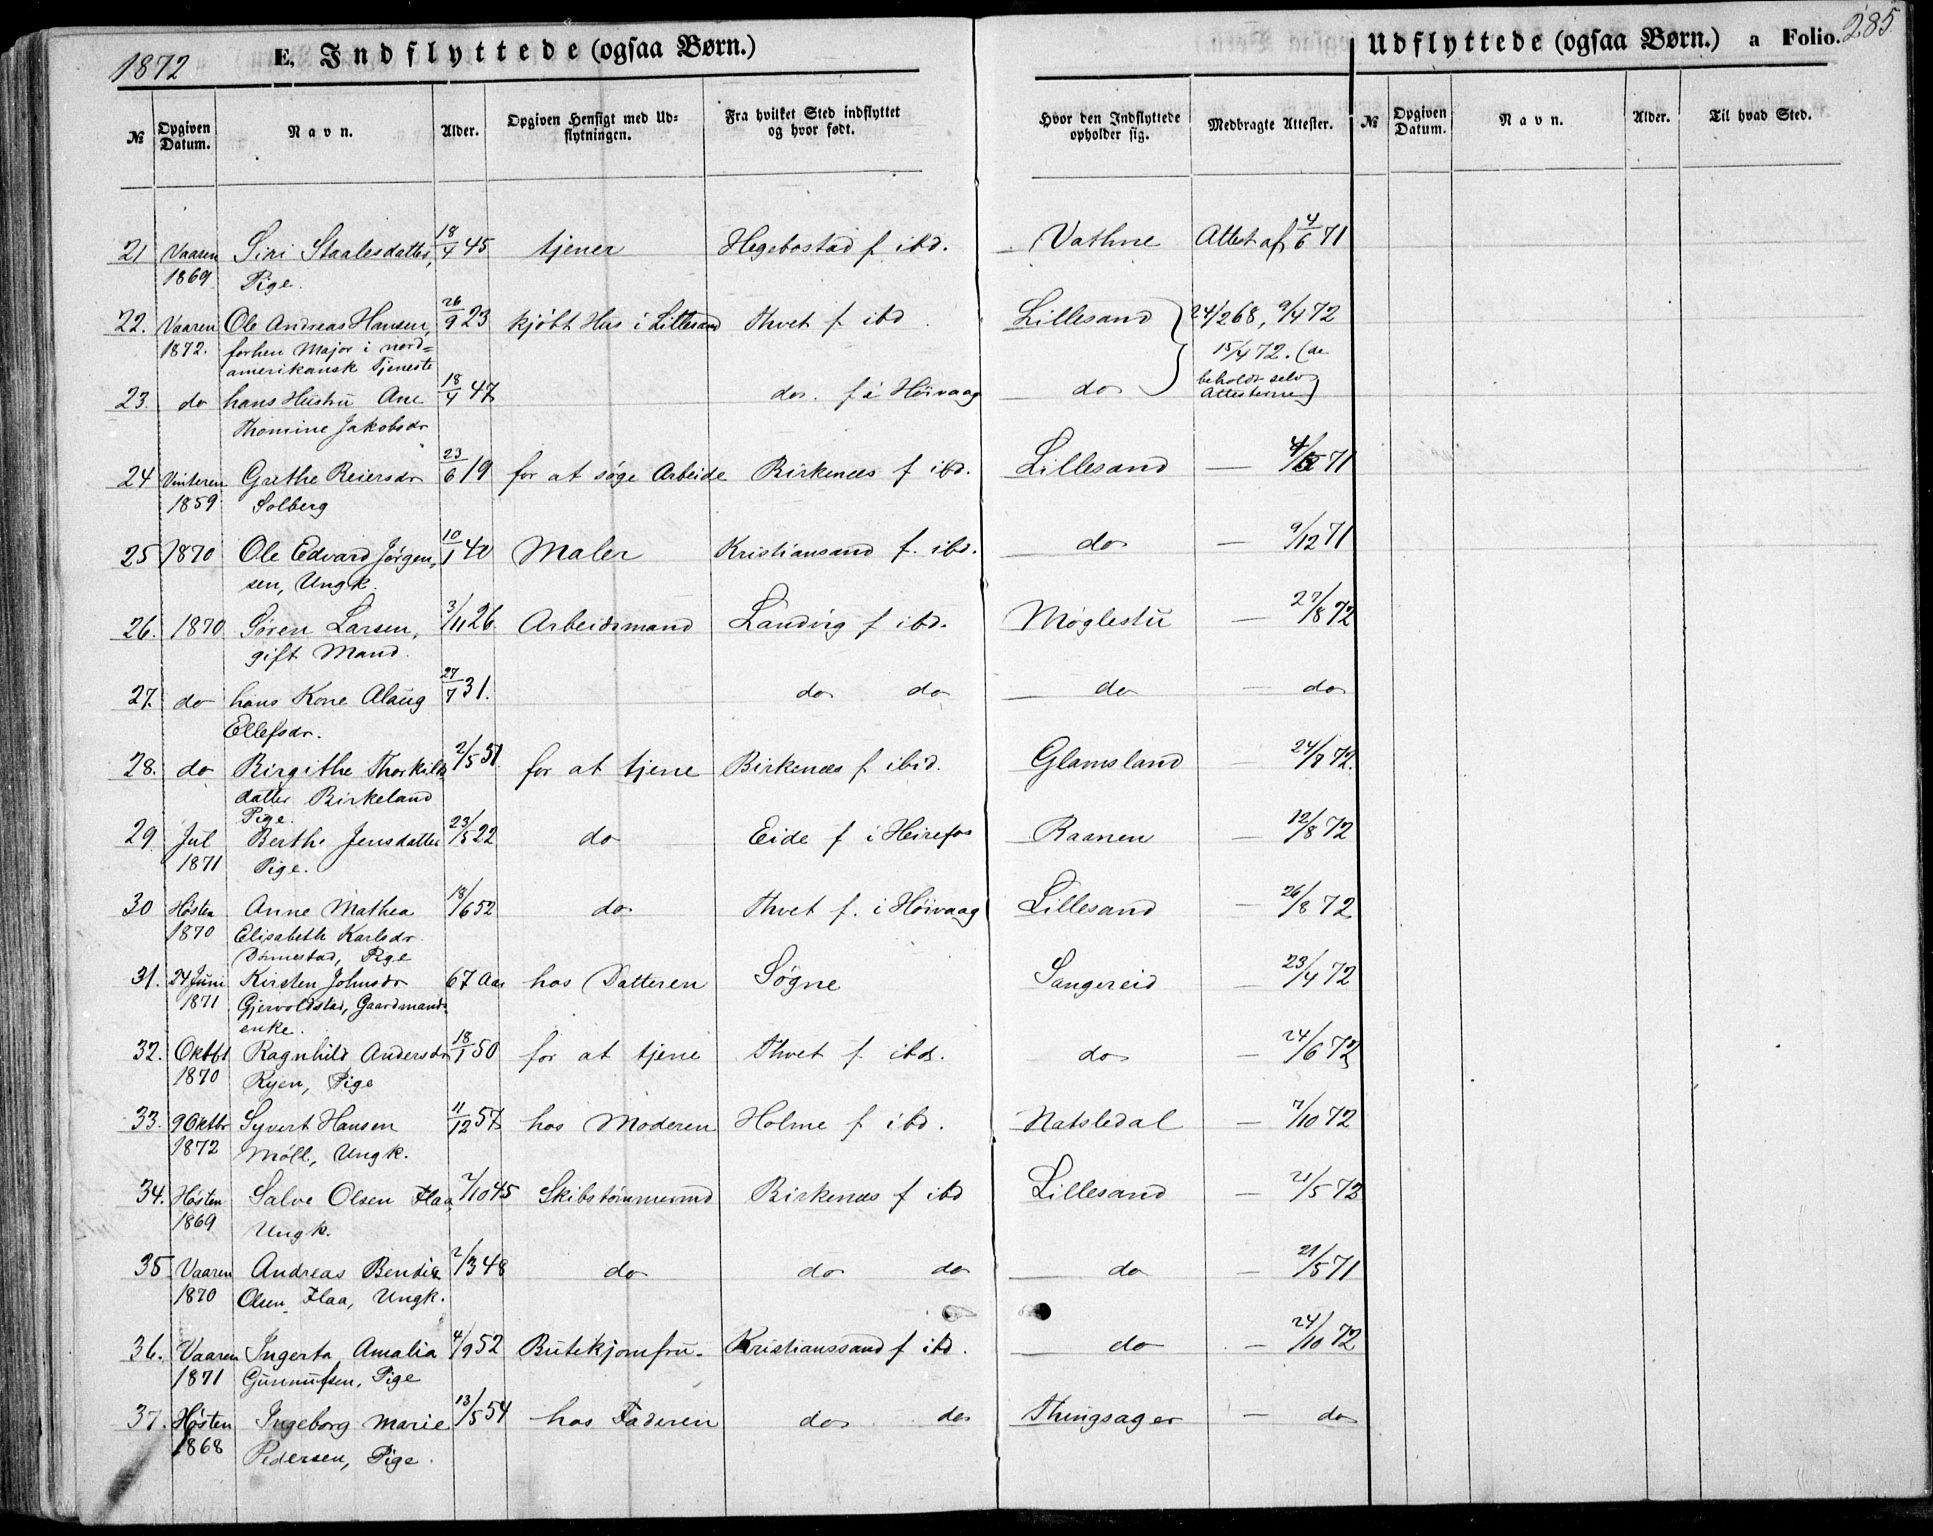 1872 E. Indflyttede (ogsaa Børn.) Udflyttede (ogsaa Børn.) a Folio. 285.
№ Opgiven Datum. Navn. Alder. Opgiven Hensigt med Udflytningen. Fra hvilket Sted indflyttet og hvor født. Hvor den Indflyttede opholder sig. Medbragte Attester. № Opgiven Datum. Navn. Alder. Til hvad Sted.
21 Vaaren Siri Staalesdatter, 18/4 45 tjener Hegebostad f. ibd. Vathne Attest af 4/6 71
1869 Pige.
22. Vaaren Ole Andreas Hansen, 26/9 23 kjøbt Hus i Lillesand Thvet f. ibd Lillesand 24/2 68, 9/4 72
1872. forhen Major i nord= 15/4 72. (de
amerikansk Tjeneste beholdt selv
23. do hans Hustru Ane 18/4 47 do. f. i Høivaag do Attesterne)
Thomine Jakobsdr
24 Vinteren Grethe Reiersdr 23/6 19 for at søge Arbeide Birkenæs f ibd. Lillesand — 71
1859 Solberg
25 1870 Ole Edvard Jørgen= 10/1 40 Maler Kristiansand f. ibd. do — 9/12 71
sen, Ungk.
26. 1870 Søren Larsen, 3/11 26. Arbeidsmand Landvig f ibd. Møglestu — 27/8 72
gift Mand.
27. do hans Kone Alaug 27/7 31. do do do — do
Ellefsdr.
28. do Birgithe Thorkilds= 2/5 51 for at tjene Birkenæs f ibid. Glamsland — 24/9 72.
datter Birkeland
Pige.
29 Jul Berthe Jensdatter 23/5 22 do Eide f i Heirefos Raanen — 12/8 72
1871 Pige.
30 Høsten Anne Mathea 18/6 52 do Thvet f. i Høivaag Lillesand — 26/8 72
1870 Elisabeth Karlsdr.
Dømestad, Pige
31. 24 Juni Kirsten Johnsdr 67 Aar hos Datteren Søgne Sangereid — 23/4 72
1871 Gjervoldstad, Gaardmands=
enke.
32. Oktbr Ragnhild Andersdr 18/1 50 for at tjene Thvet f. ibd. do — 24/6 72
1870 Ryen, Pige
33. 9 Oktbr Syvert Hansen 11/12 57 hos Moderen Holme f ibd. Natsledal — 7/10 72
1872 Möll, Ungk.
34. Høsten Salve Olsen Flaa, 2/10 45 Skibstømmermd Birkenæs f ibd Lillesand — 21/5 72
1869 Ungk.
35 Vaaren Andreas Bendix 2/3 48 do do do do — 21/5 71
1870 Olsen Flaa, Ungk.
36. Vaaren Ingerta Amalia 4/9 52 Butikjomfru. Kristianssand f ibd. do — 24/10 72
1871 Gunnufsen, Pige
37. Høsten Ingeborg Marie 13/5 54 hos Faderen do do Thingsager — do
1868 Pedersen, Pige.